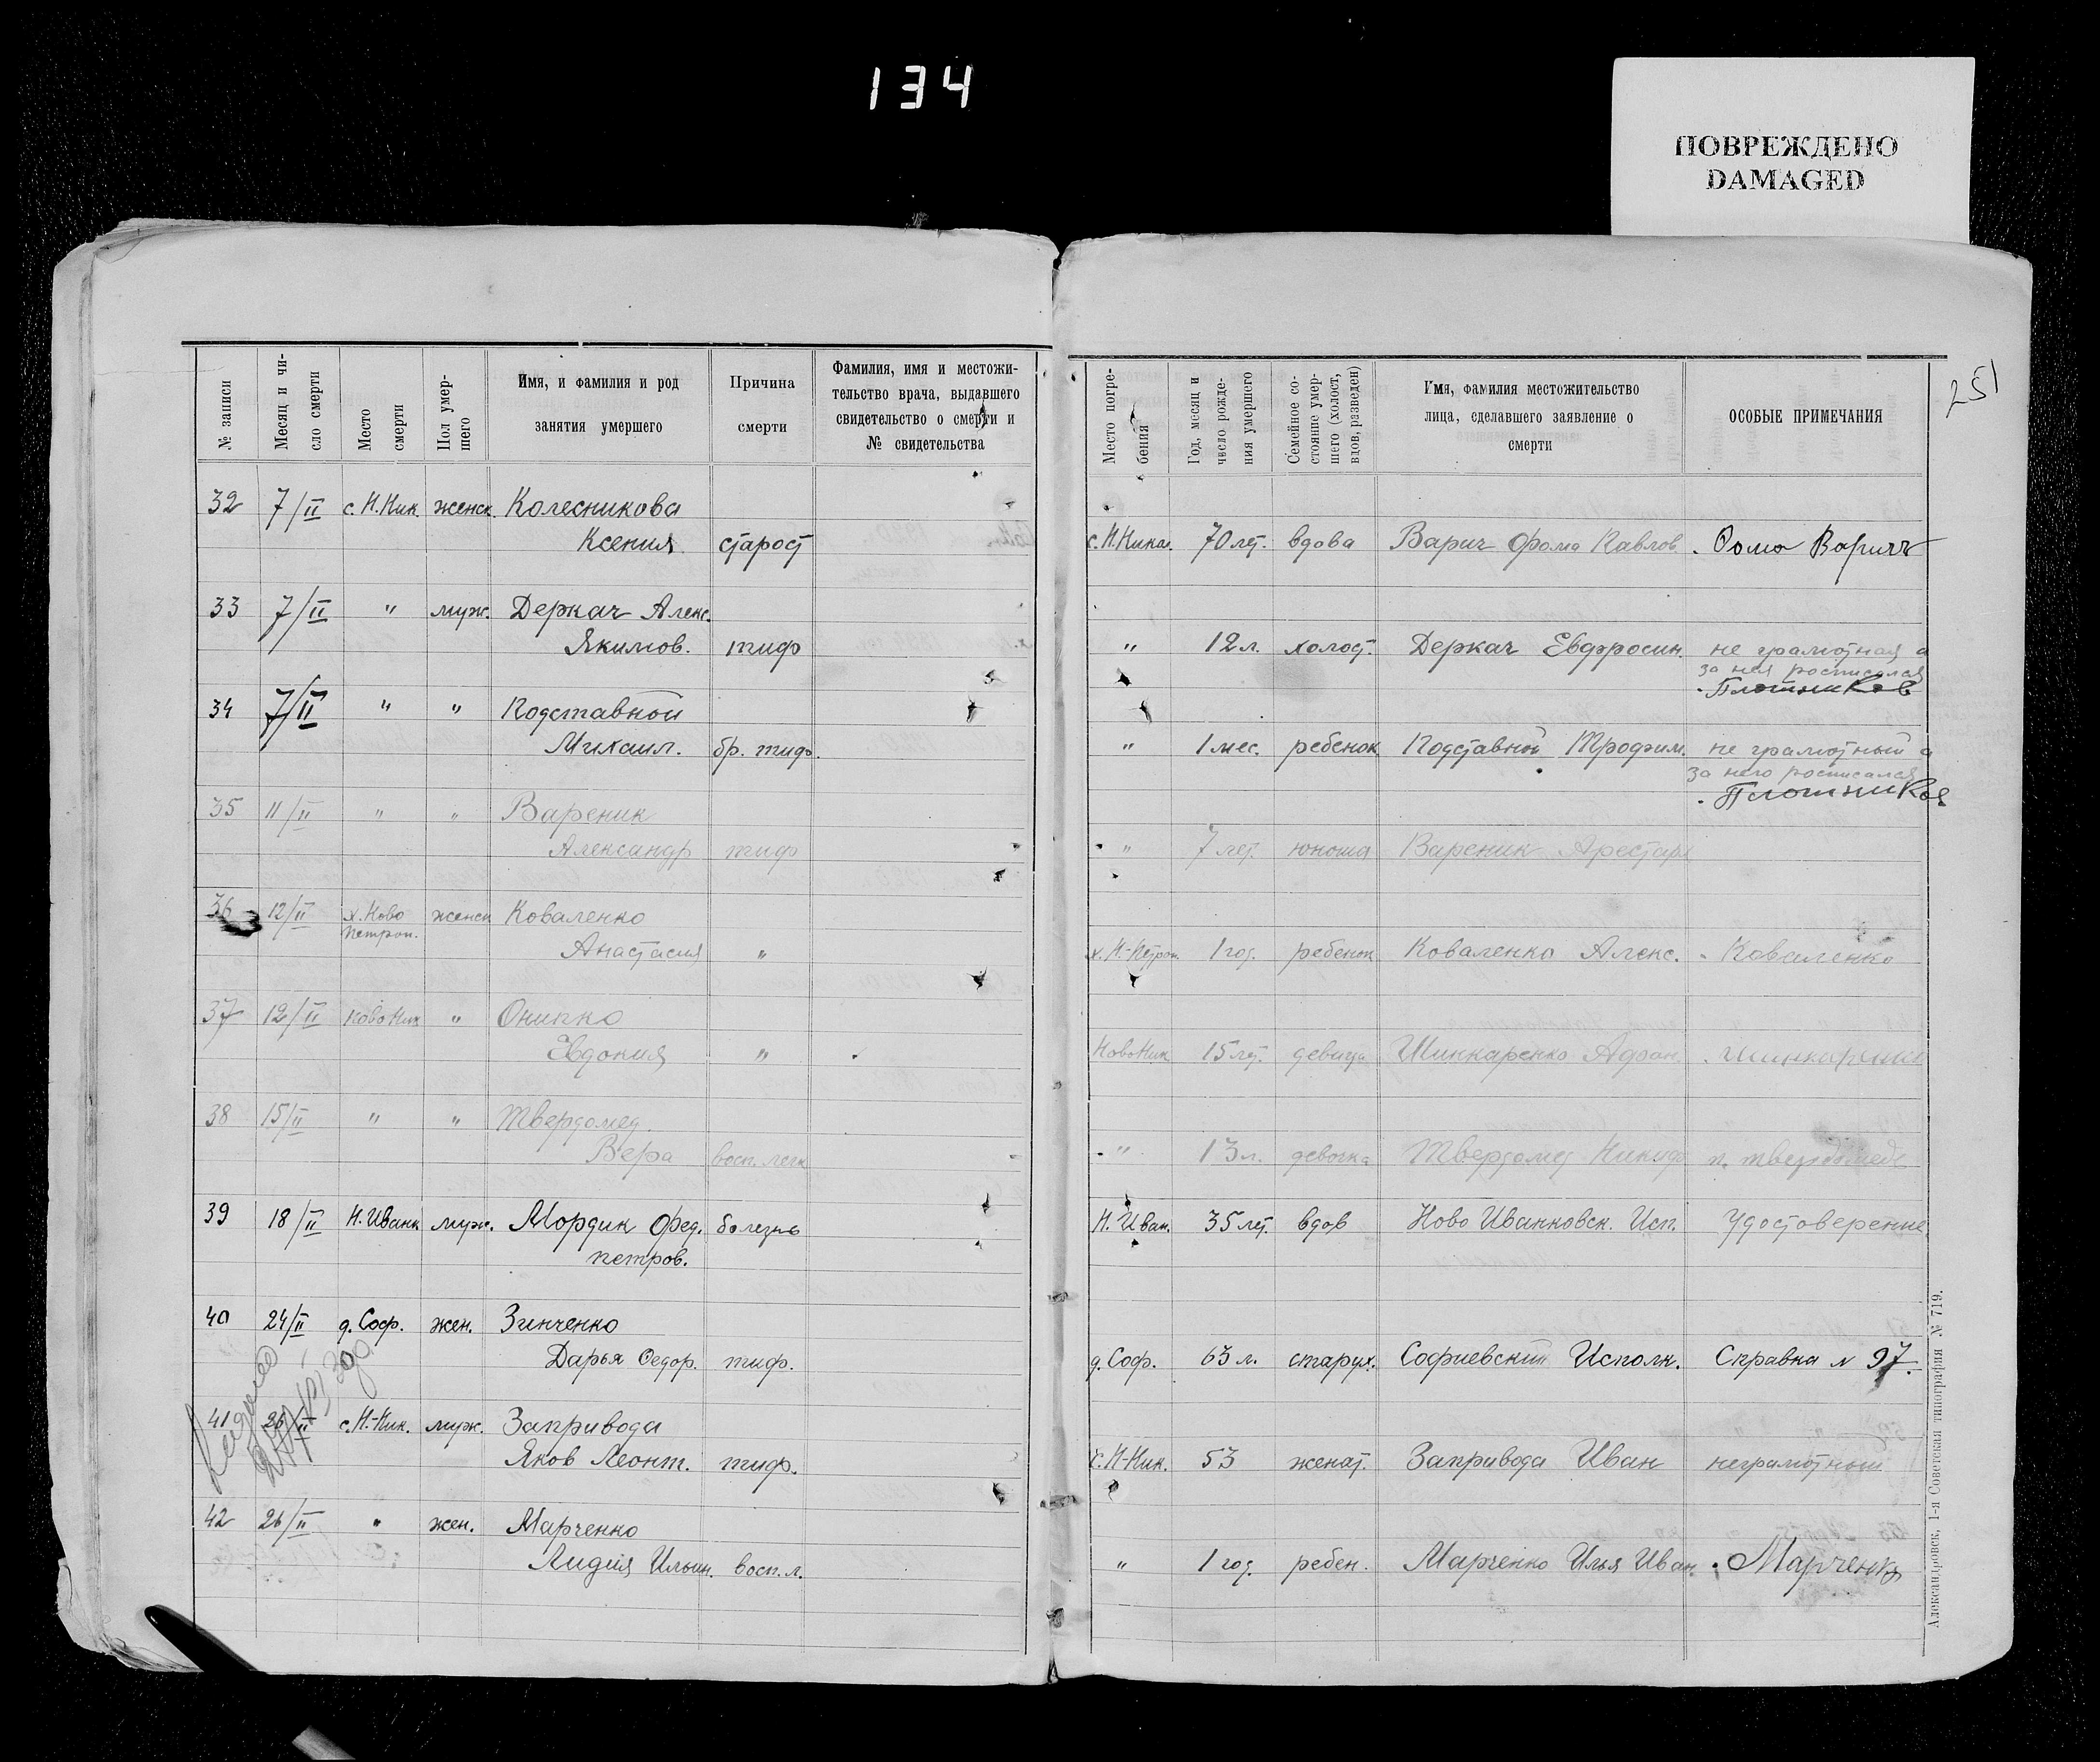 134
ПОВРЕЖДЕНО
DAMAGED
251
№ записи
Месяц и число смерти
Место смерти
Пол умершего
Имя, и фамилия и род занятия умершего
Причина смерти
Фамилия, имя и местожительство врача, выдавшего свидетельство о смерти и № свидетельства
Место погребения
Год, месяц и число рождения умершего
Семейное состояние умершего (холост, вдов, разведен)
Имя, фамилия местожительство лица, сделавшего заявление о смерти
ОСОБЫЕ ПРИМЕЧАНИЯ
32 7/II с. Н. Ник. женск. Колесникова
Ксения старост с. Н. Никол. 70 лет. вдова Варич Фома Павлов. Фома Варичъ
33 7/II " муж. Деркач Алекс.
Якимов. тиф " 12 л. холост. Деркач Евфросин. не грамотная а
за нея росписался
Плотников
34 7/II " " Подставной
Михаил. бр. тиф. " 1 мес. ребенок Подставной Трофим. не грамотный а
за него росписался
Плотников
35 11/II " " Вареник
Александр тиф " 7 лет. юноша Вареник
36 12/II х. Ново женск Коваленко
Петроп.
Анастасия " х. Н.-Петроп. 1 год. ребенок Коваленко Алекс. Коваленко
37 12/II Ново Ник " Онипко
Евдокия " Ново Ник 15 лет. девица Шинкаренко Афан. Шинкаренко
38 15/II " " Твердомед
Вера восп. легк " 13 л. девочка Твердомед Никиф. Твердомед
39 18/II Н. Иванк муж. Мордик Фед. болезнь Н. Иван. 35 лет. вдов Ново Иванковск. Исп. Удостоверение
петров.
40 24/II д. Соф. жен. Зинченко
Дарья Федор. тиф. д. Соф. 63 л. старух. Софиевский Исполк. Справка № 97.
41 26/II с. Н.-Ник. муж. Запривода
Яков Леонт. тиф. с. Н-Ник. 53 женат. Запривода Иван неграмотный
42 26/II " жен. Марченко
Лидия Ильин. восп. л. " 1 год. ребен. Марченко Илья Иван. Марченко
Александровск, 1-я Советская типография № 719.